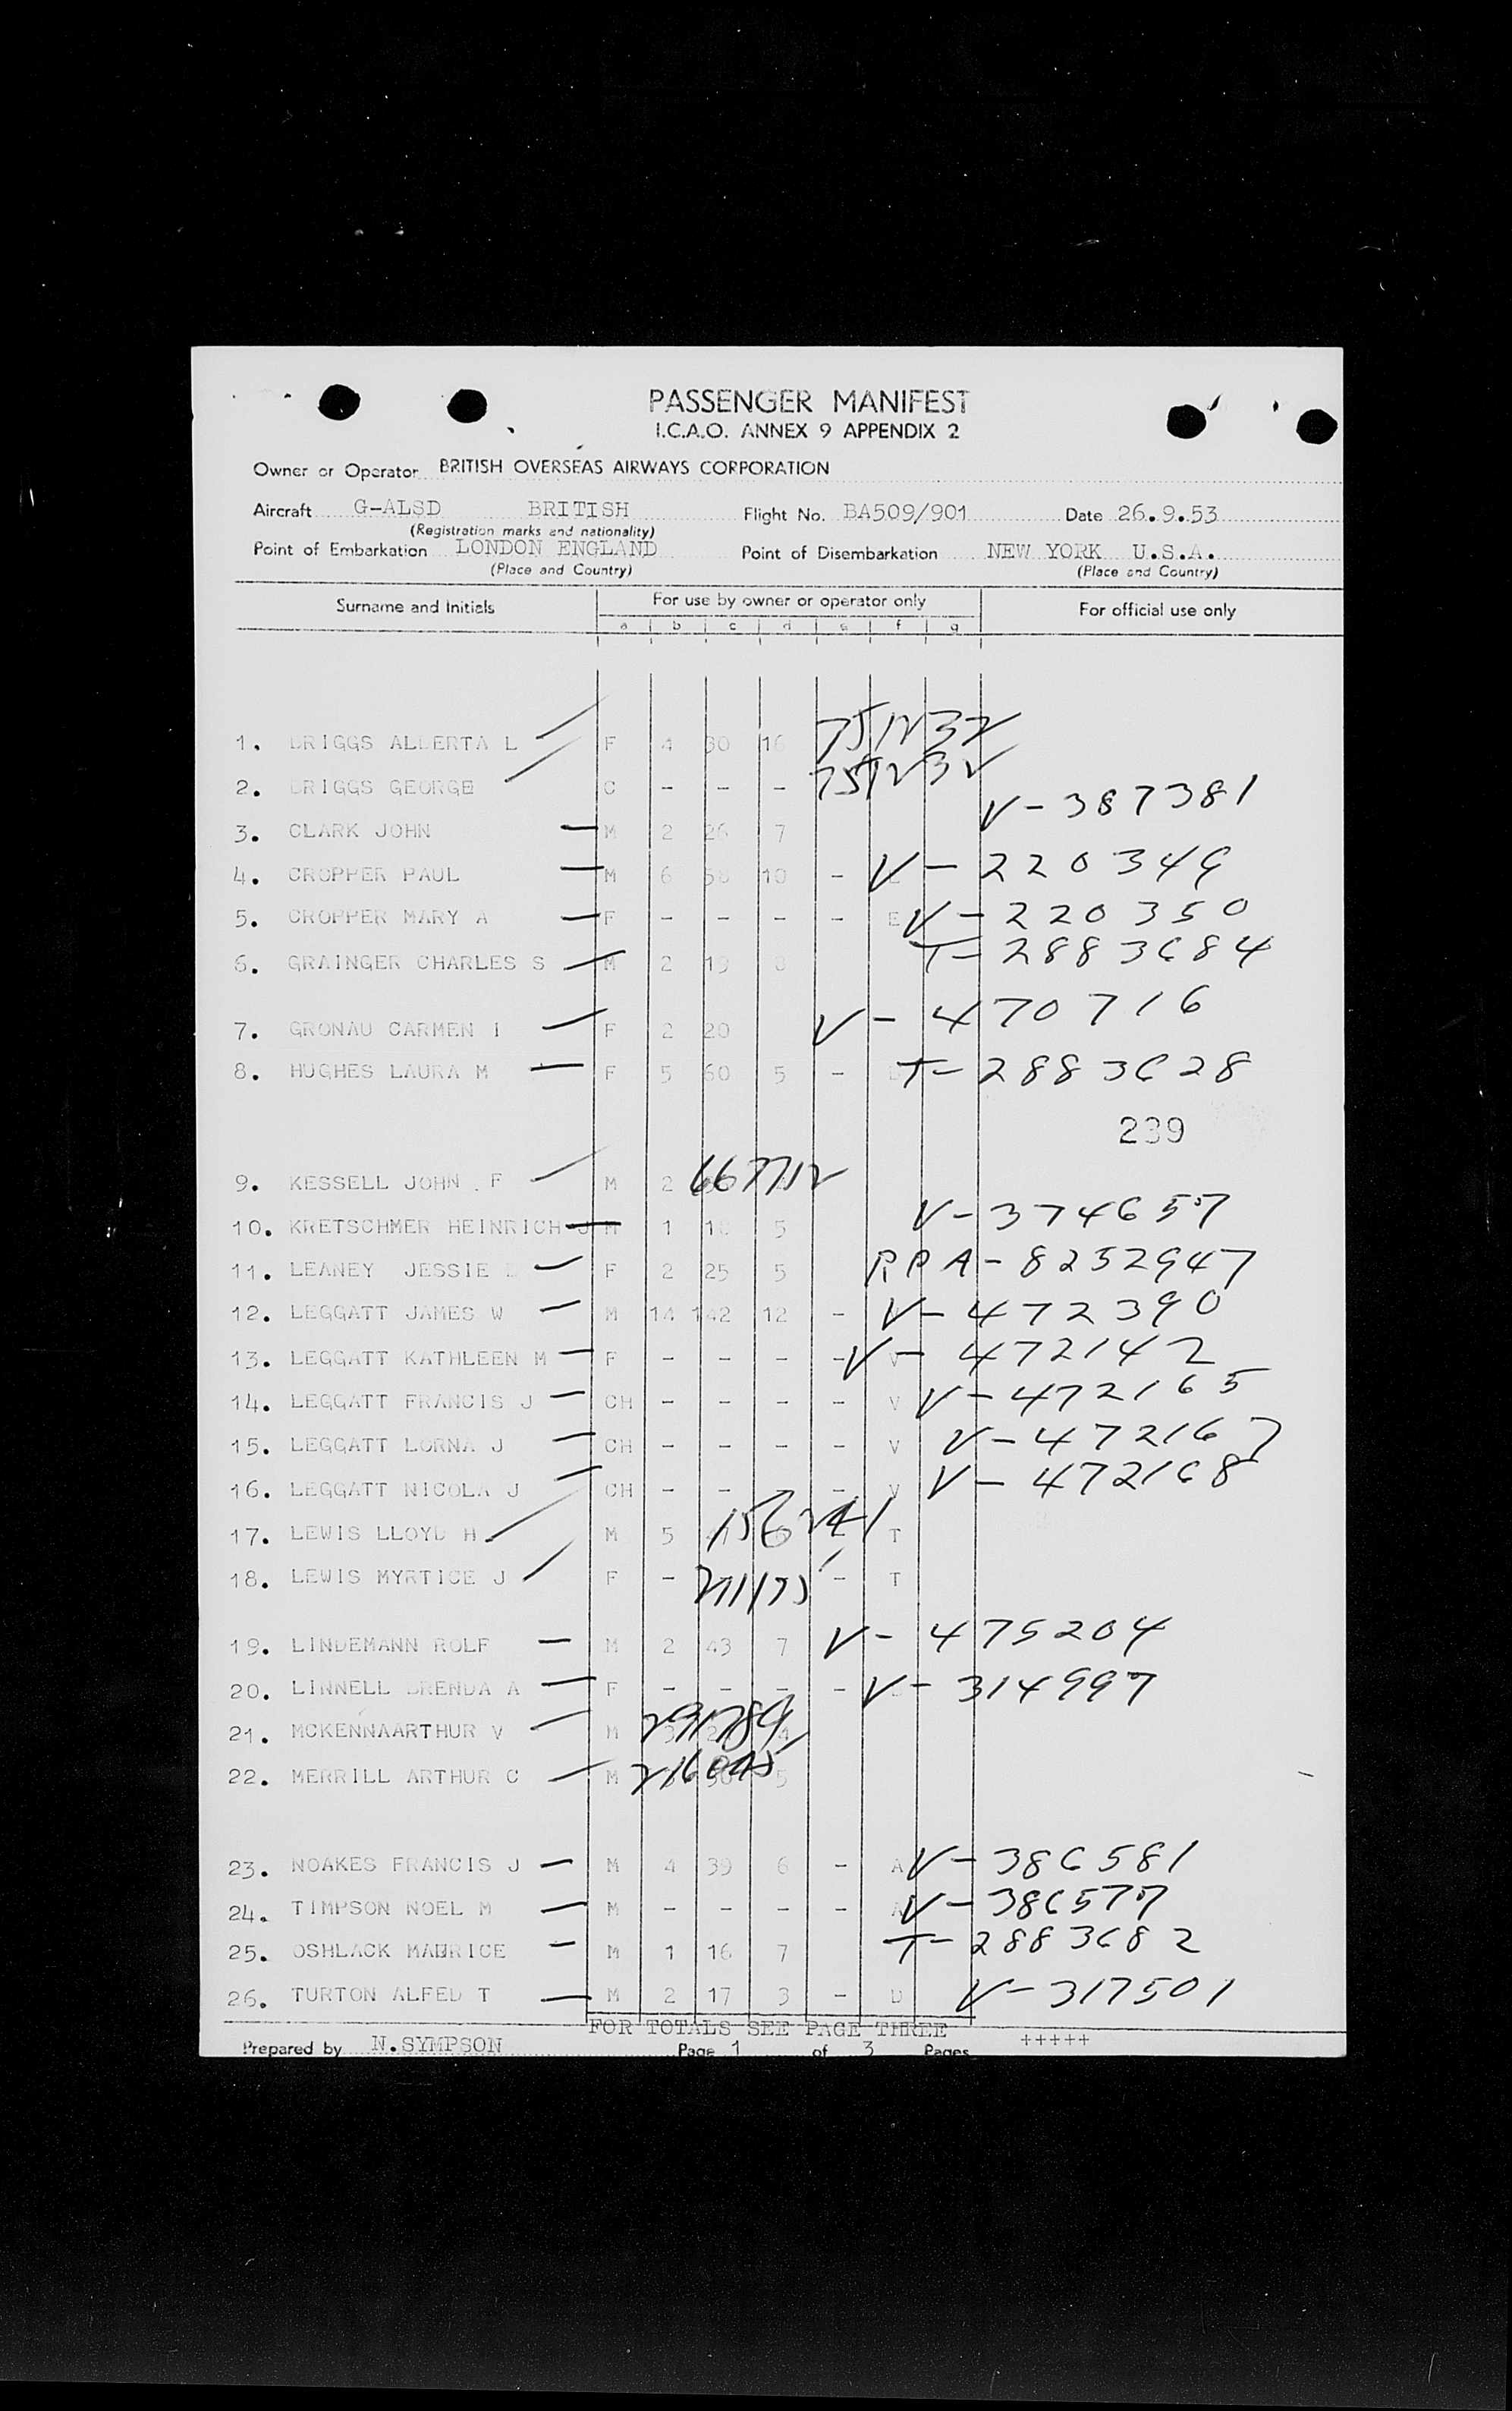 PASSENGER MANIFEST
I.C.A.O. ANNEX 9 APPENDIX 2
Owner or Operator BRITISH OVERSEAS AIRWAYS CORPORATION
Aircraft G-ALSD BRITISH Flight No. BA509/901 Date 26.9.53
(Registration marks and nationality)
Point of Embarkation LONDON ENGLAND Point of Disembarkation NEW YORK U.S.A.
(Place and Country) (Place and Country)
Surname and Initials For use by owner or operator only For official use only
a b c d e f g
1. BRIGGS ALBERTA L F 4 30 16 751232
2. BRIGGS GEORGE C - - - 751232
3. CLARK JOHN M 2 26 7 V-387381
4. CROPPER PAUL M 6 58 10 - V-220349
5. CROPPER MARY A F - - - - E V-220350
6. GRAINGER CHARLES S M 2 19 8 T-2883684
7. GRONAU CARMEN I F 2 20 V-470716
8. HUGHES LAURA M F 5 60 5 - T-2883628
239
9. KESSELL JOHN F M 2 667712
10. KRETSCHMER HEINRICH J M 1 5 V-374657
11. LEANEY JESSIE F 2 25 5 RPA-8252947
12. LEGGATT JAMES W M 14 142 12 - V-472390
13. LEGGATT KATHLEEN M F - - - - V V-472142
14. LEGGATT FRANCIS J CH - - - - V V-472165
15. LEGGATT LORNA J CH - - - - V V-472167
16. LEGGATT NICOLA J CH - - - - V V-472168
17. LEWIS LLOYD H M 5 T
18. LEWIS MYRTICE J F - - T
19. LINDEMANN ROLF M 2 43 7 V-475204
20. LINNELL BRENDA A F - - - - V-314997
21. MCKENNAARTHUR V M
22. MERRILL ARTHUR C M 5
23. NOAKES FRANCIS J M 4 39 6 - A V-386581
24. TIMPSON NOEL M M - - - - A V-386577
25. OSHLACK MAURICE M 1 16 7 T-2883682
26. TURTON ALFED T M 2 17 3 - D V-317501
FOR TOTALS SEE PAGE THREE
Prepared by N.SYMPSON Page 1 of 3 Pages +++++